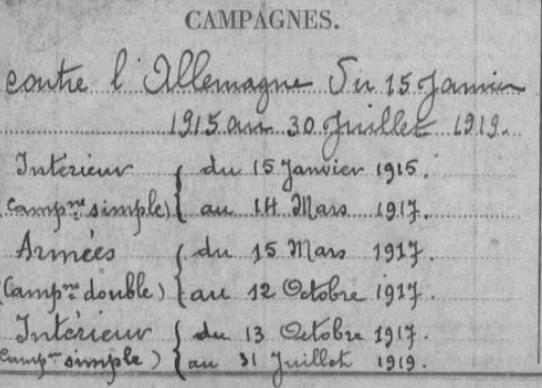 CAMPAGNES.
contre l'Allemagne Du 15 Janvier
1915 au 30 Juillet 1919.
Intérieur { du 15 Janvier 1915.
(Campne simple) { au 14 Mars 1917.
Armées { du 15 Mars 1917.
(Campne double) { au 12 Octobre 1917.
Intérieur { du 13 Octobre 1917.
(Campne simple) { au 31 Juillet 1919.